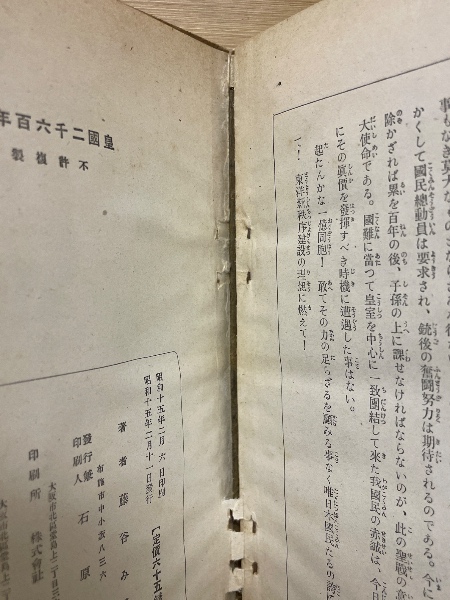 事もなき
かくして國民總動員は要求され、銃後の奮鬪努力は期待されるのである。今に
除かざれば累を百年の後、子孫の上に課せなければならないのが、此の聖戰の意
大使命である。國難に當つて皇室を中心に一致團結して來た我國民の赤誠は、今日
にその眞價を發揮すべき時機に遭遇した事はない。
起たんかな一億同胞!敢てその力の足らざるを顧みる事なく唯日本國民たるの
、!東洋新秩序建設の理想に燃えて!
皇國二千六百年
不許複製
昭和十五年二月六日印刷
昭和十五年二月十一日發行
【定價六十五錢
著者 藤谷み
布施市中小阪八三六
發行兼印刷人 石原
大阪市北區堂島上二丁目三
印刷所 株式會社
大阪市北區堂島上二